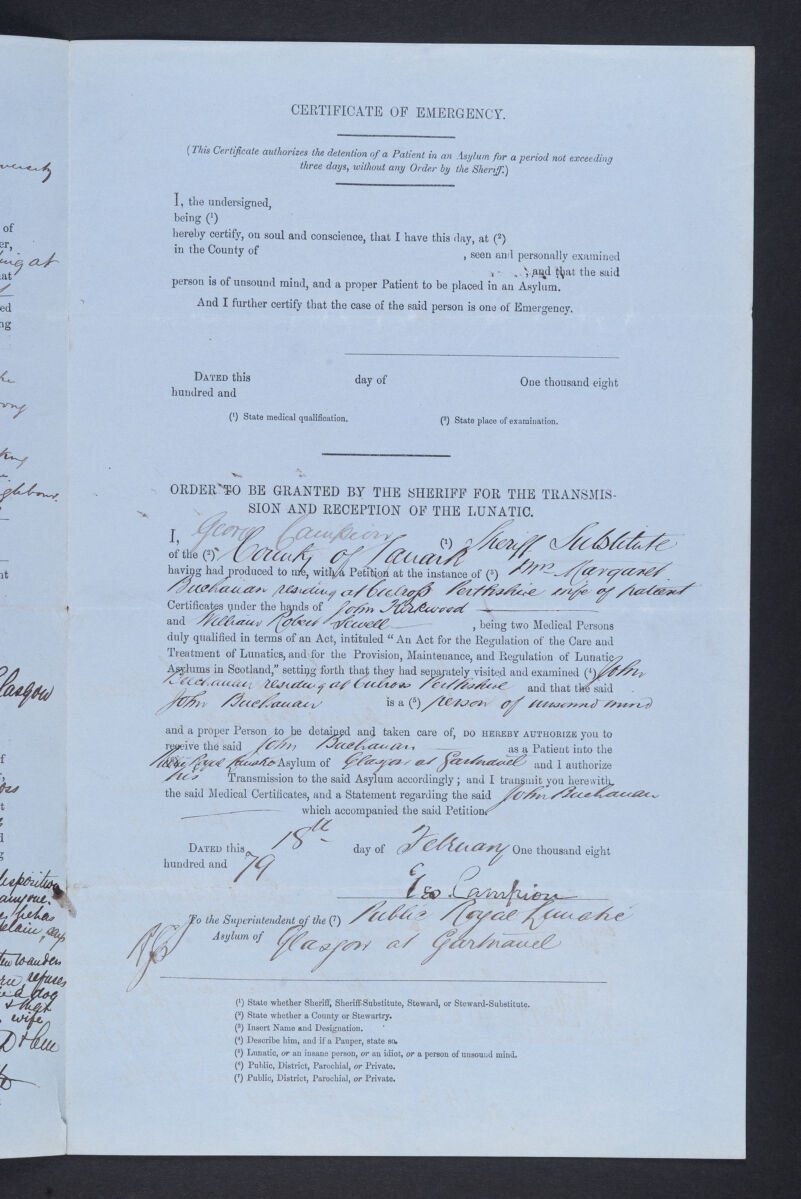 CERTIFICATE OF EMERGENCY.
(This Certificate authorizes the detention of a Patient in an Asylum for a period not exceeding
three days, without any Order by the Sheriff.)
I, the undersigned,
being (¹)
hereby certify, on soul and conscience, that I have this day, at (²)
in the County of , seen and personally examined
; and that the said
person is of unsound mind, and a proper Patient to be placed in an Asylum.
And I further certify that the case of the said person is one of Emergency.
DATED this day of One thousand eight
hundred and
(¹) State medical qualification. (²) State place of examination.
ORDER TO BE GRANTED BY THE SHERIFF FOR THE TRANSMIS-
SION AND RECEPTION OF THE LUNATIC.
I, George Campion (¹) Sheriff Substitute
of the (²) County of Lanark
having had produced to me, with a Petition at the instance of (³) Mrs Margaret
Buchanan residing at Culross Perthshire wife of patient
Certificates under the hands of John Kirkwood
and William Robert Sewell , being two Medical Persons
duly qualified in terms of an Act, intituled "An Act for the Regulation of the Care and
Treatment of Lunatics, and for the Provision, Maintenance, and Regulation of Lunatic
Asylums in Scotland," setting forth that they had separately visited and examined (⁴) John
Buchanan residing at Culross Perthshire and that the said
John Buchanan is a (⁵) person of unsound mind
and a proper Person to be detained and taken care of, DO HEREBY AUTHORIZE you to
receive the said John Buchanan as a Patient into the
Royal Lunatic Asylum of Glasgow at Gartnavel and I authorize
his Transmission to the said Asylum accordingly; and I transmit you herewith
the said Medical Certificates, and a Statement regarding the said John Buchanan
which accompanied the said Petition.
DATED this 18th day of February One thousand eight
hundred and 79
Geo. Campion
To the Superintendent of the (⁷) Public Royal Lunatic
Asylum of Glasgow at Gartnavel
(¹) State whether Sheriff, Sheriff-Substitute, Steward, or Steward-Substitute.
(²) State whether a County or Stewartry.
(³) Insert Name and Designation.
(⁴) Describe him, and if a Pauper, state so.
(⁵) Lunatic, or an insane person, or an idiot, or a person of unsound mind.
(⁶) Public, District, Parochial, or Private.
(⁷) Public, District, Parochial, or Private.